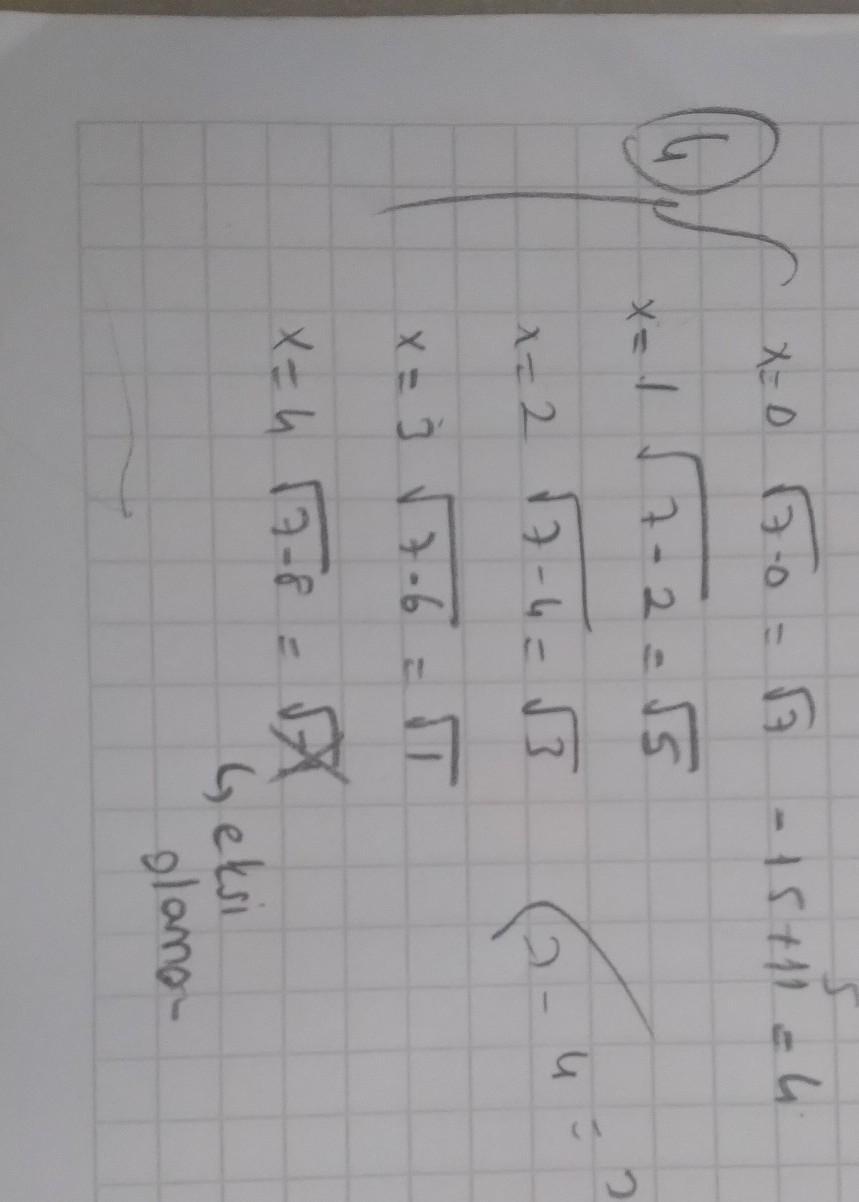 4
x=0 √7-0 = √7 -15+11 = 4
x=1 √7-2 = √5
x=2 √7-4 = √3
x=3 √7-6 = √1
x=4 √7-8 =
↳ eksi
olama-